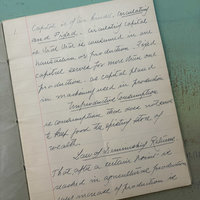 1. Capital is of two kinds, circulating
and Fixed. Circulating capital
is that that is consumed in one
production. Fixed
capital serves for more than one
production. as capital placed
in machinery used in production
Unproductive Consumption
is consumption that does not tend
to keep from the existing store of
wealth.
Law of Diminishing Returns
That after a certain point is
reached in agricultural production
increase of production is